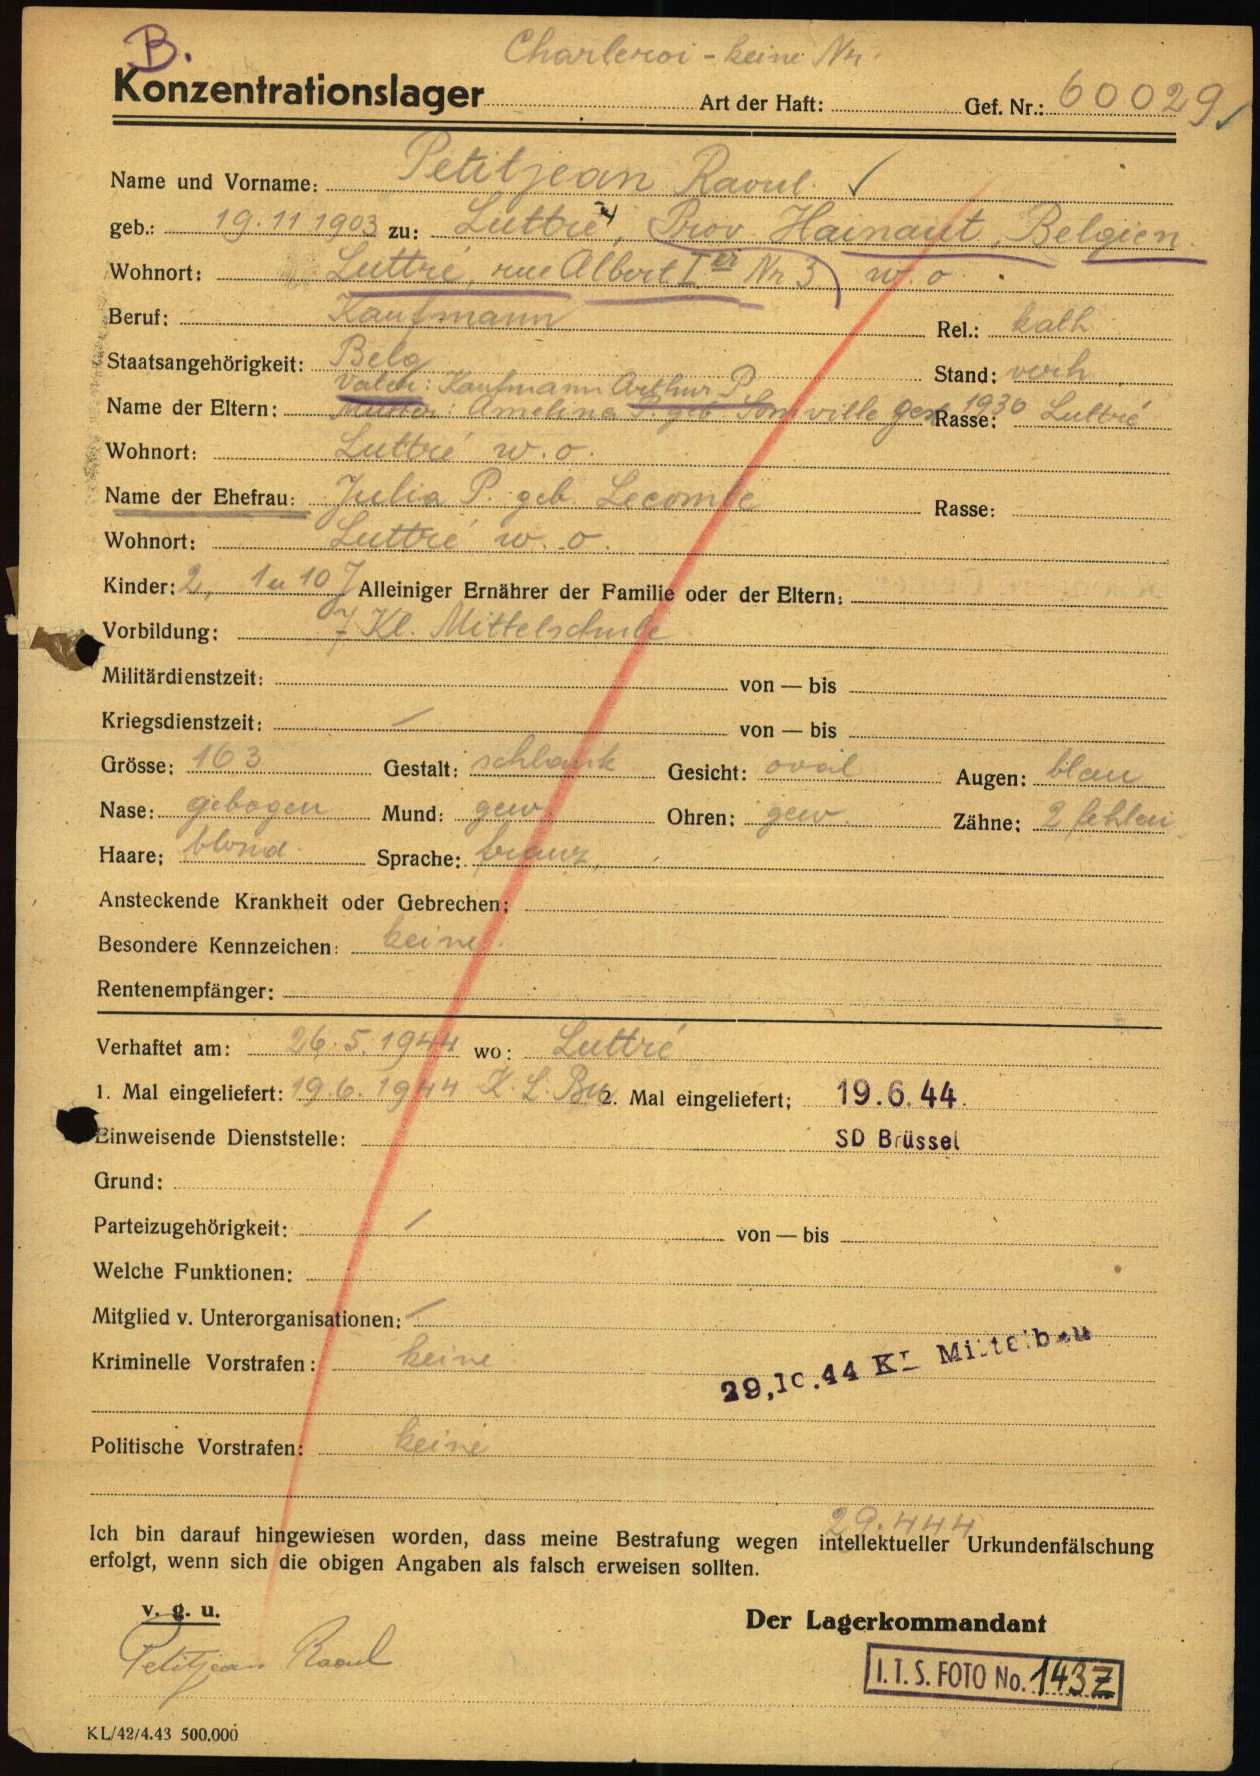 B.
Charleroi - keine Nr.
Konzentrationslager Art der Haft: Gef. Nr.: 60029
Name und Vorname: Petitjean Raoul
geb.: 19.11.1903 zu: Luttré, Prov Hainaut, Belgien
Wohnort: Luttré, rue Albert Ier Nr 3 w. o
Beruf: Kaufmann Rel.: kath
Staatsangehörigkeit: Belg Stand: verh.
Vater: Kaufmann Arthur P.
Name der Eltern: Mutter: Amelina P. geb Somville gest 1930 Luttré Rasse:
Wohnort: Luttré w. o.
Name der Ehefrau: Julia P. geb. Lecomte Rasse:
Wohnort: Luttré w. o.
Kinder: 2, 1 u 10 J Alleiniger Ernährer der Familie oder der Eltern:
Vorbildung: 7 Kl. Mittelschule
Militärdienstzeit: von — bis
Kriegsdienstzeit: / von — bis
Grösse: 163 Gestalt: schlank Gesicht: oval Augen: blau
Nase: gebogen Mund: gew. Ohren: gew. Zähne: 2 fehlen
Haare: blond. Sprache: franz.
Ansteckende Krankheit oder Gebrechen:
Besondere Kennzeichen: keine.
Rentenempfänger:
Verhaftet am: 26.5.1944 wo: Luttré
1. Mal eingeliefert: 19.6.1944 K. L. Bu 2. Mal eingeliefert: 19.6.44.
Einweisende Dienststelle: SD Brüssel
Grund:
Parteizugehörigkeit: / von — bis
Welche Funktionen:
Mitglied v. Unterorganisationen: /
Kriminelle Vorstrafen: keine
29.10.44 KL Mittelbau
Politische Vorstrafen: keine
29.444
Ich bin darauf hingewiesen worden, dass meine Bestrafung wegen intellektueller Urkundenfälschung
erfolgt, wenn sich die obigen Angaben als falsch erweisen sollten.
v. g. u.
Der Lagerkommandant
Petitjean Raoul
I.T.S. FOTO No. 1437
KL/42/4.43 500.000